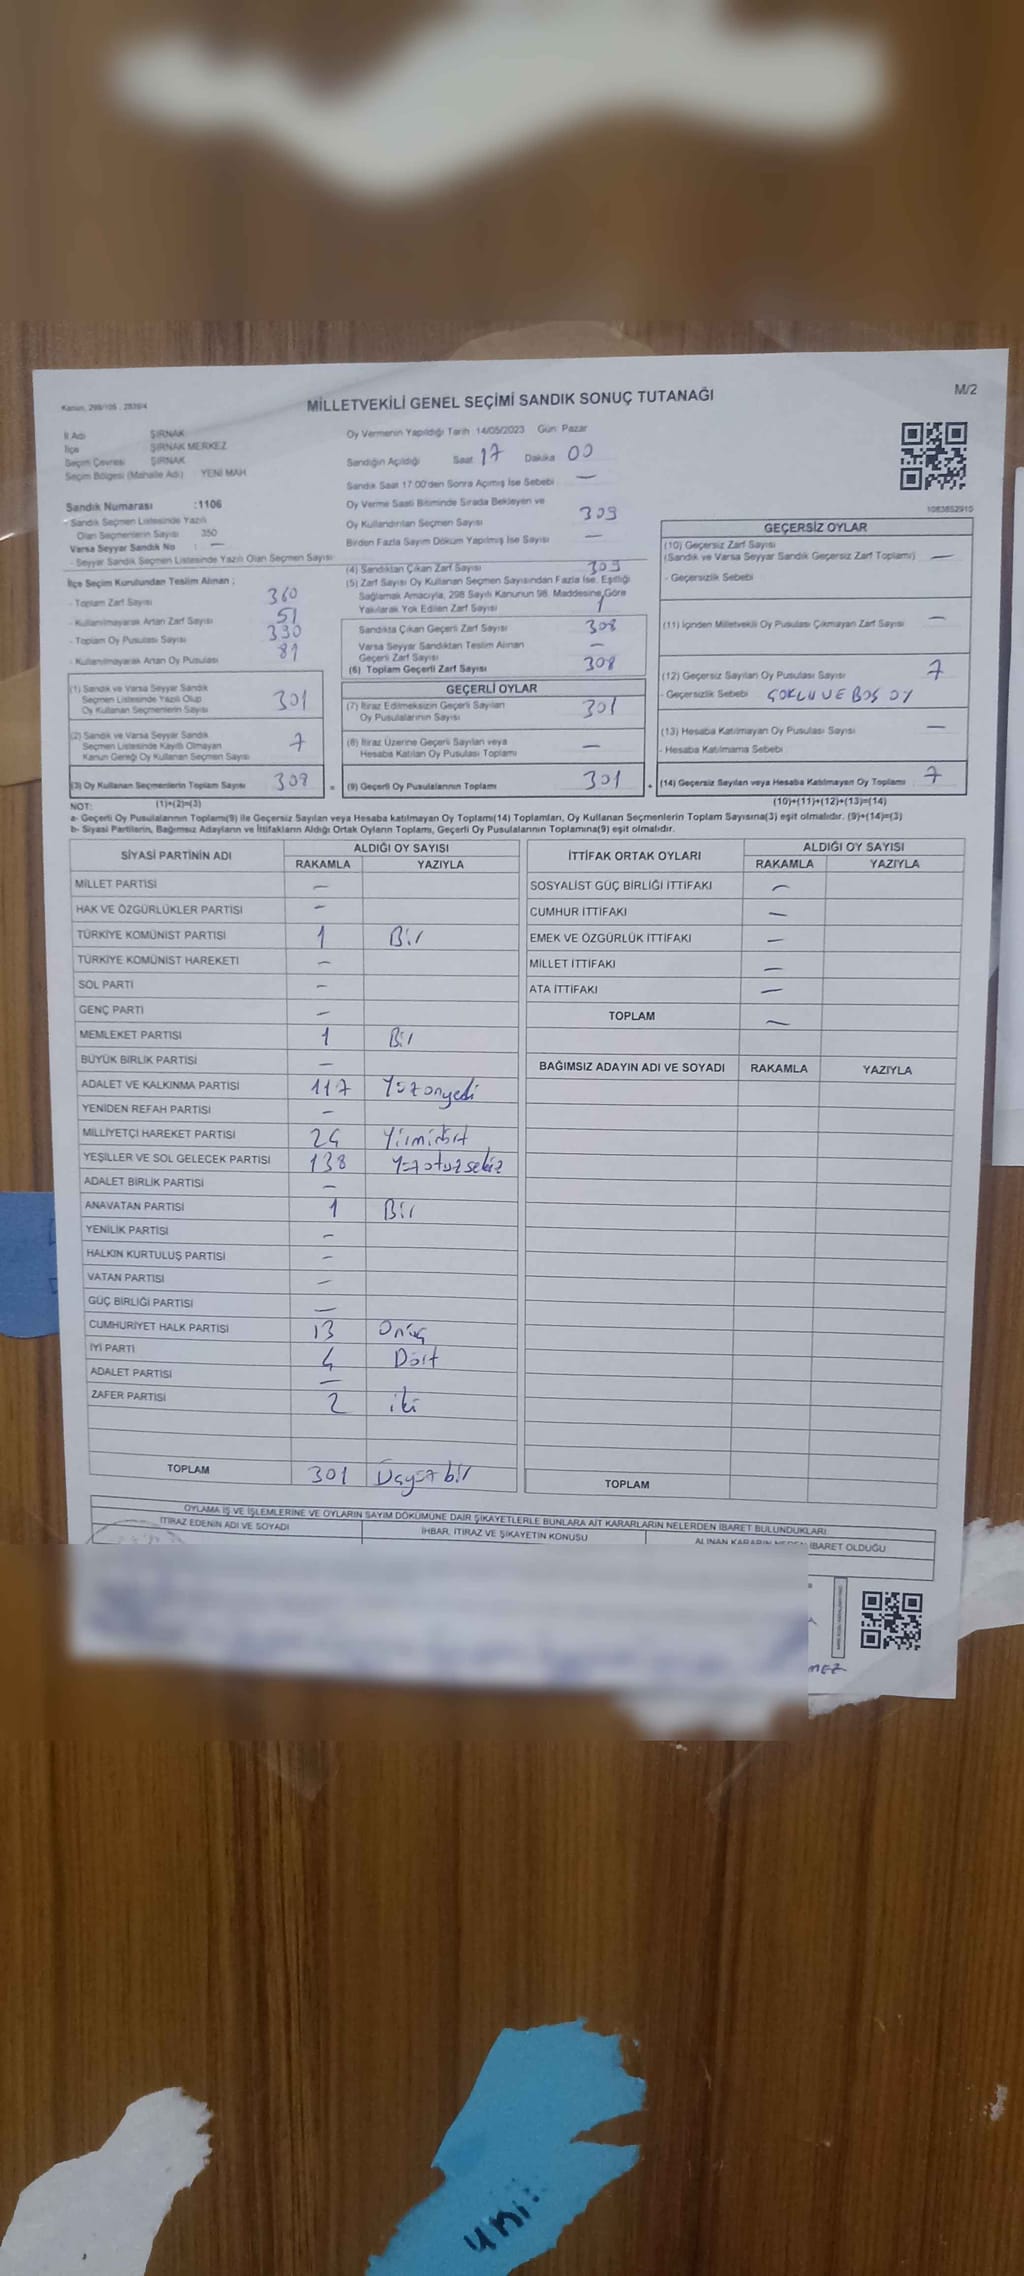 Kanun, 298/105 , 2839/4
MİLLETVEKİLİ GENEL SEÇİMİ SANDIK SONUÇ TUTANAĞI
M/2
İl Adı ŞIRNAK
İlçe ŞIRNAK MERKEZ
Seçim Çevresi ŞIRNAK
Seçim Bölgesi (Mahalle Adı) YENİ MAH
Sandık Numarası :1106
- Sandık Seçmen Listesinde Yazılı
Olan Seçmenlerin Sayısı 350
Varsa Seyyar Sandık No : —
- Seyyar Sandık Seçmen Listesinde Yazılı Olan Seçmen Sayısı
İlçe Seçim Kurulundan Teslim Alınan ;
- Toplam Zarf Sayısı 360
- Kullanılmayarak Artan Zarf Sayısı 51
- Toplam Oy Pusulası Sayısı 390
- Kullanılmayarak Artan Oy Pusulası 81
(1) Sandık ve Varsa Seyyar Sandık
Seçmen Listesinde Yazılı Olup
Oy Kullanan Seçmenlerin Sayısı 301
(2) Sandık ve Varsa Seyyar Sandık
Seçmen Listesinde Kayıtlı Olmayan
Kanun Gereği Oy Kullanan Seçmen Sayısı 7
(3) Oy Kullanan Seçmenlerin Toplam Sayısı 308
Oy Vermenin Yapıldığı Tarih 14/05/2023 Gün: Pazar
Sandığın Açıldığı Saat 17 Dakika 00
Sandık Saat 17:00'den Sonra Açımış İse Sebebi —
Oy Verme Saati Bitiminde Sırada Bekleyen ve
Oy Kullandırılan Seçmen Sayısı 309
Birden Fazla Sayım Döküm Yapılmış İse Sayısı —
(4) Sandıktan Çıkan Zarf Sayısı 309
(5) Zarf Sayısı Oy Kullanan Seçmen Sayısından Fazla İse, Eşitliği
Sağlamak Amacıyla, 298 Sayılı Kanunun 98. Maddesine Göre
Yakılarak Yok Edilen Zarf Sayısı 1
Sandıkta Çıkan Geçerli Zarf Sayısı 308
Varsa Seyyar Sandıktan Teslim Alınan
Geçerli Zarf Sayısı —
(6) Toplam Geçerli Zarf Sayısı 308
GEÇERLİ OYLAR
(7) İtiraz Edilmeksizin Geçerli Sayılan
Oy Pusulalarının Sayısı 301
(8) İtiraz Üzerine Geçerli Sayılan veya
Hesaba Katılan Oy Pusulası Toplamı —
= (9) Geçerli Oy Pusulalarının Toplamı 301 +
1083852910
GEÇERSİZ OYLAR
(10) Geçersiz Zarf Sayısı
(Sandık ve Varsa Seyyar Sandık Geçersiz Zarf Toplamı) —
- Geçersizlik Sebebi
(11) İçinden Milletvekili Oy Pusulası Çıkmayan Zarf Sayısı —
(12) Geçersiz Sayılan Oy Pusulası Sayısı 7
- Geçersizlik Sebebi ÇOKLU VE BOŞ OY
(13) Hesaba Katılmayan Oy Pusulası Sayısı —
- Hesaba Katılmama Sebebi
(14) Geçersiz Sayılan veya Hesaba Katılmayan Oy Toplamı 7
NOT: (1)+(2)=(3) (10)+(11)+(12)+(13)=(14)
a- Geçerli Oy Pusulalarının Toplamı(9) ile Geçersiz Sayılan veya Hesaba katılmayan Oy Toplamı(14) Toplamları, Oy Kullanan Seçmenlerin Toplam Sayısına(3) eşit olmalıdır. (9)+(14)=(3)
b- Siyasi Partilerin, Bağımsız Adayların ve İttifakların Aldığı Ortak Oyların Toplamı, Geçerli Oy Pusulalarının Toplamına(9) eşit olmalıdır.
SİYASİ PARTİNİN ADI ALDIĞI OY SAYISI
RAKAMLA YAZIYLA
MİLLET PARTİSİ —
HAK VE ÖZGÜRLÜKLER PARTİSİ —
TÜRKİYE KOMÜNİST PARTİSİ 1 Bir
TÜRKİYE KOMÜNİST HAREKETİ —
SOL PARTİ —
GENÇ PARTİ —
MEMLEKET PARTİSİ 1 Bir
BÜYÜK BİRLİK PARTİSİ —
ADALET VE KALKINMA PARTİSİ 117 Yüzonyedi
YENİDEN REFAH PARTİSİ —
MİLLİYETÇİ HAREKET PARTİSİ 24 Yirmidört
YEŞİLLER VE SOL GELECEK PARTİSİ 138 Yüzotuzsekiz
ADALET BİRLİK PARTİSİ —
ANAVATAN PARTİSİ 1 Bir
YENİLİK PARTİSİ —
HALKIN KURTULUŞ PARTİSİ —
VATAN PARTİSİ —
GÜÇ BİRLİĞİ PARTİSİ —
CUMHURİYET HALK PARTİSİ 13 Onüç
İYİ PARTİ 4 Dört
ADALET PARTİSİ —
ZAFER PARTİSİ 2 iki
TOPLAM 301 Üçyüzbir
İTTİFAK ORTAK OYLARI ALDIĞI OY SAYISI
RAKAMLA YAZIYLA
SOSYALİST GÜÇ BİRLİĞİ İTTİFAKI —
CUMHUR İTTİFAKI —
EMEK VE ÖZGÜRLÜK İTTİFAKI —
MİLLET İTTİFAKI —
ATA İTTİFAKI —
TOPLAM —
BAĞIMSIZ ADAYIN ADI VE SOYADI RAKAMLA YAZIYLA
TOPLAM
OYLAMA İŞ VE İŞLEMLERİNE VE OYLARIN SAYIM DÖKÜMÜNE DAİR ŞİKAYETLERLE BUNLARA AİT KARARLARIN NELERDEN İBARET BULUNDUKLARI
İTİRAZ EDENİN ADI VE SOYADI İHBAR, İTİRAZ VE ŞİKAYETİN KONUSU ALINAN KARARIN NEDEN İBARET OLDUĞU